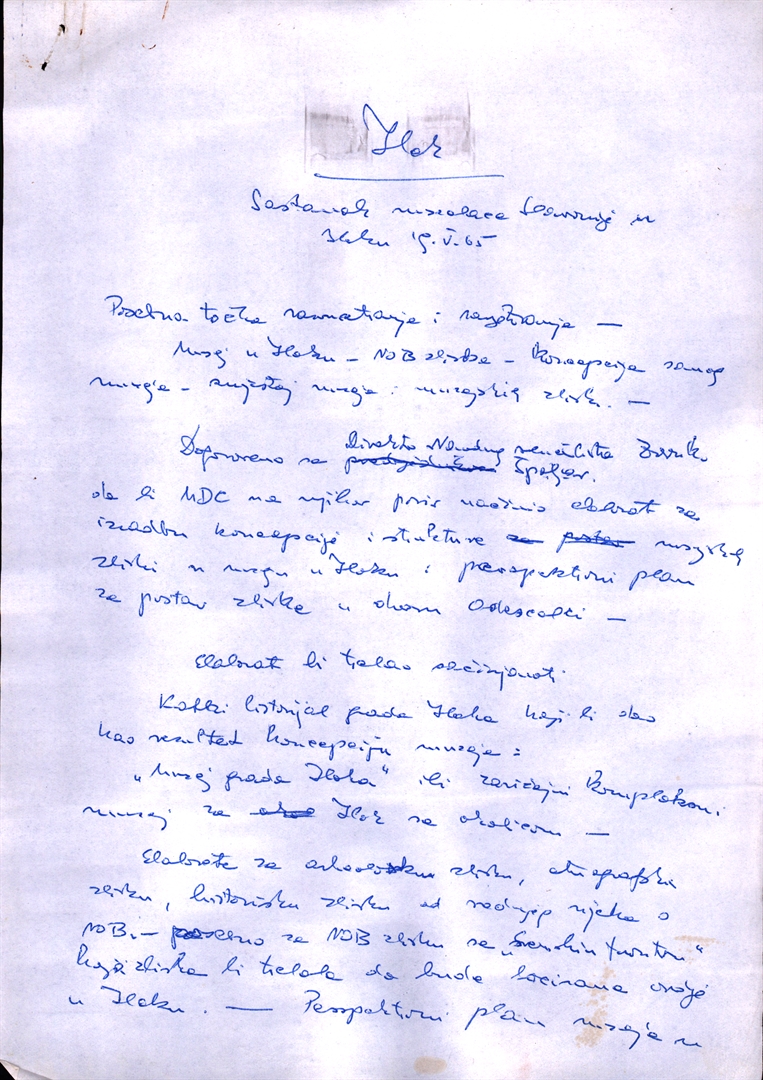 Ilok
Sastanak muzealaca Slavonije u
Iloku 19. V. 65
Posebna točka razmatranja i
Muzej u Iloku - NOB zbirka - Koncepcija samog
muzeja - smještaj muzeja i muzejskih zbirki. -
Direktor Narodnog sveučilišta Zvonko
Dogovoreno sa Špoljar.
da bi MDC na njihov poziv načinio elaborat za
izradbu koncepcije i strukture za postav muzejskih
zbirki u muzeju u Iloku i perspektivni plan
za postav zbirke u dvoru Odescalchi -
Elaborat bi trebao sačinjavati:
Kratki historijat grada Iloka koji bi dao
kao rezultat koncepciju muzeja:
"Muzej grada Iloka" ili zavičajni kompleksni
muzej za Ilok sa okolicom -
Elaborate za arheološku zbirku, etnografsku
zbirku, historijsku zbirku od srednjeg vijeka do
NOB. - posebno za NOB zbirku sa „Sremskim frontom"
koja zbirka bi trebala da bude locirana ovdje
u Iloku. - Perspektivni plan muzeja u